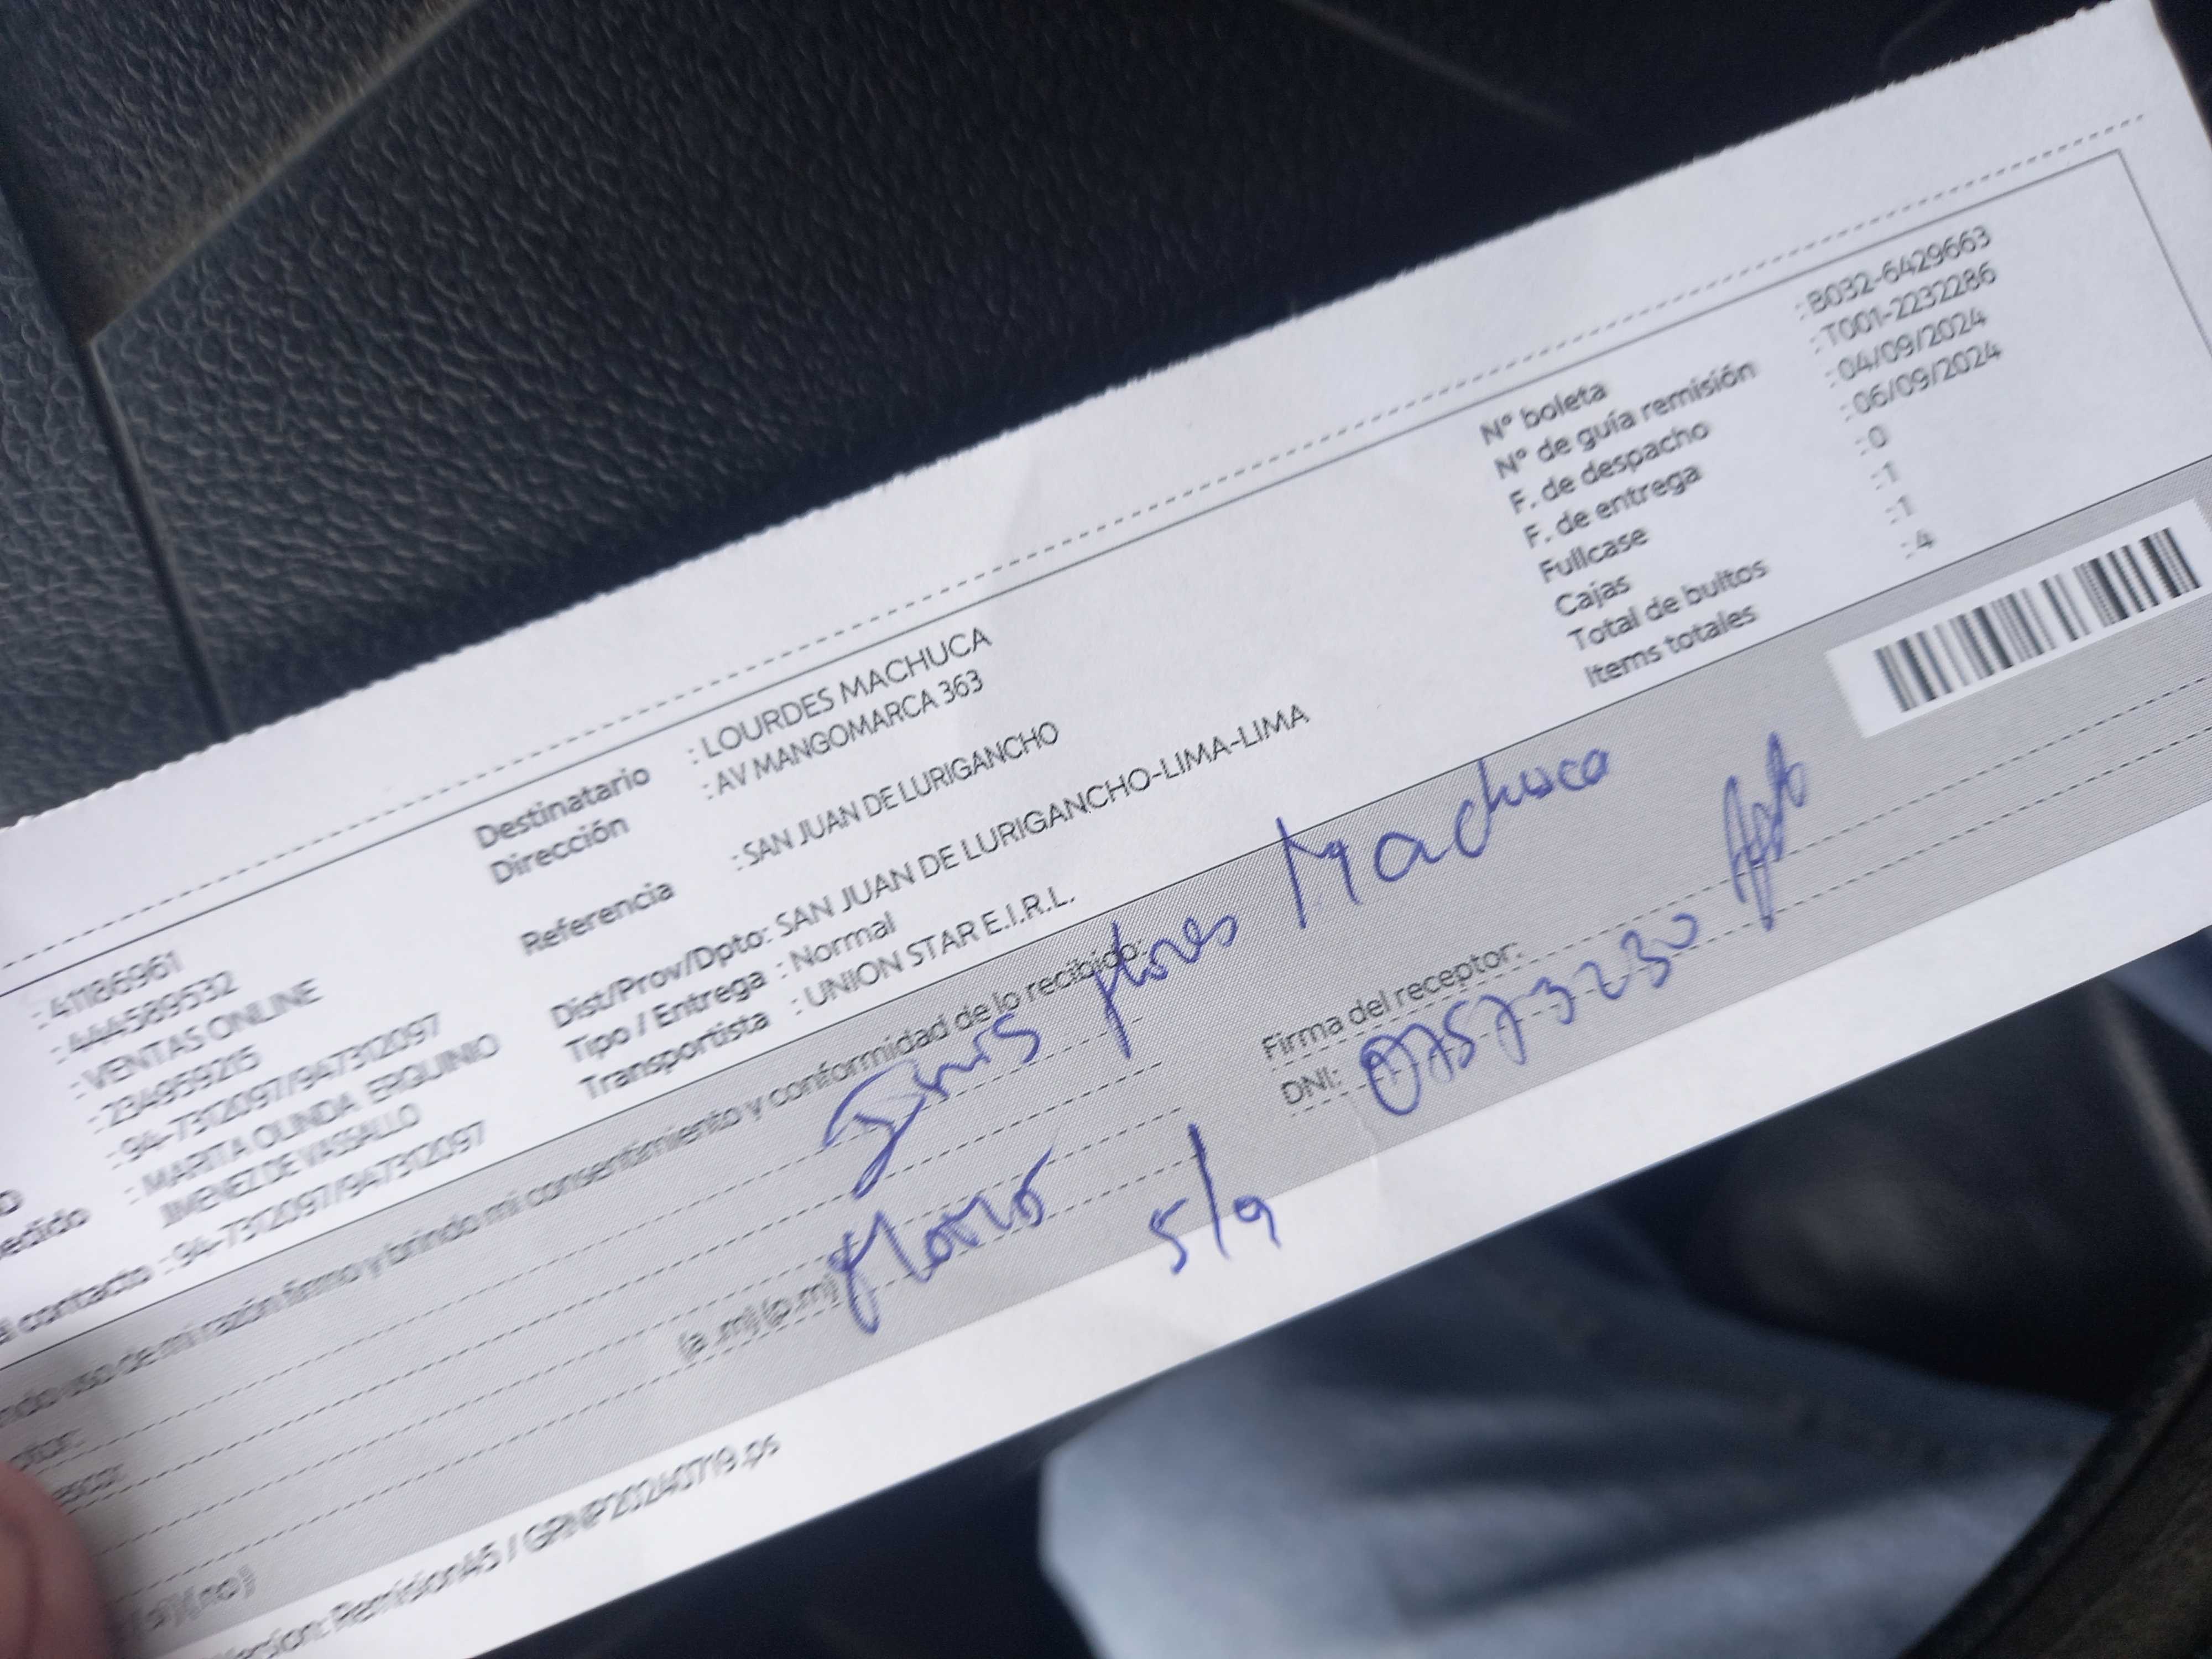 : 41186961
: 444589532
: VENTAS ONLINE
: 234959215
: 94-7312097/947312097
: MARITA OLINDA ERQUINIO
JIMENEZ DE VASSALLO
contacto : 94-7312097/947312097
Destinatario : LOURDES MACHUCA
Dirección : AV MANGOMARCA 363
Referencia : SAN JUAN DE LURIGANCHO
Dist/Prov/Dpto: SAN JUAN DE LURIGANCHO-LIMA-LIMA
Tipo / Entrega : Normal
Transportista : UNION STAR E.I.R.L.
N° boleta : B032-6429663
N° de guía remisión : T001-2232286
F. de despacho : 04/09/2024
F. de entrega : 06/09/2024
Fullcase : 0
Cajas : 1
Total de bultos : 1
Items totales : 4
uso de mi razón firmo y brindo mi consentimiento y conformidad de lo recibido:
flores Machuca
(a .m) (p.m)
5/9
Firma del receptor:
DNI: 07573230
Version: Remision45 / GRNP20240719.ps